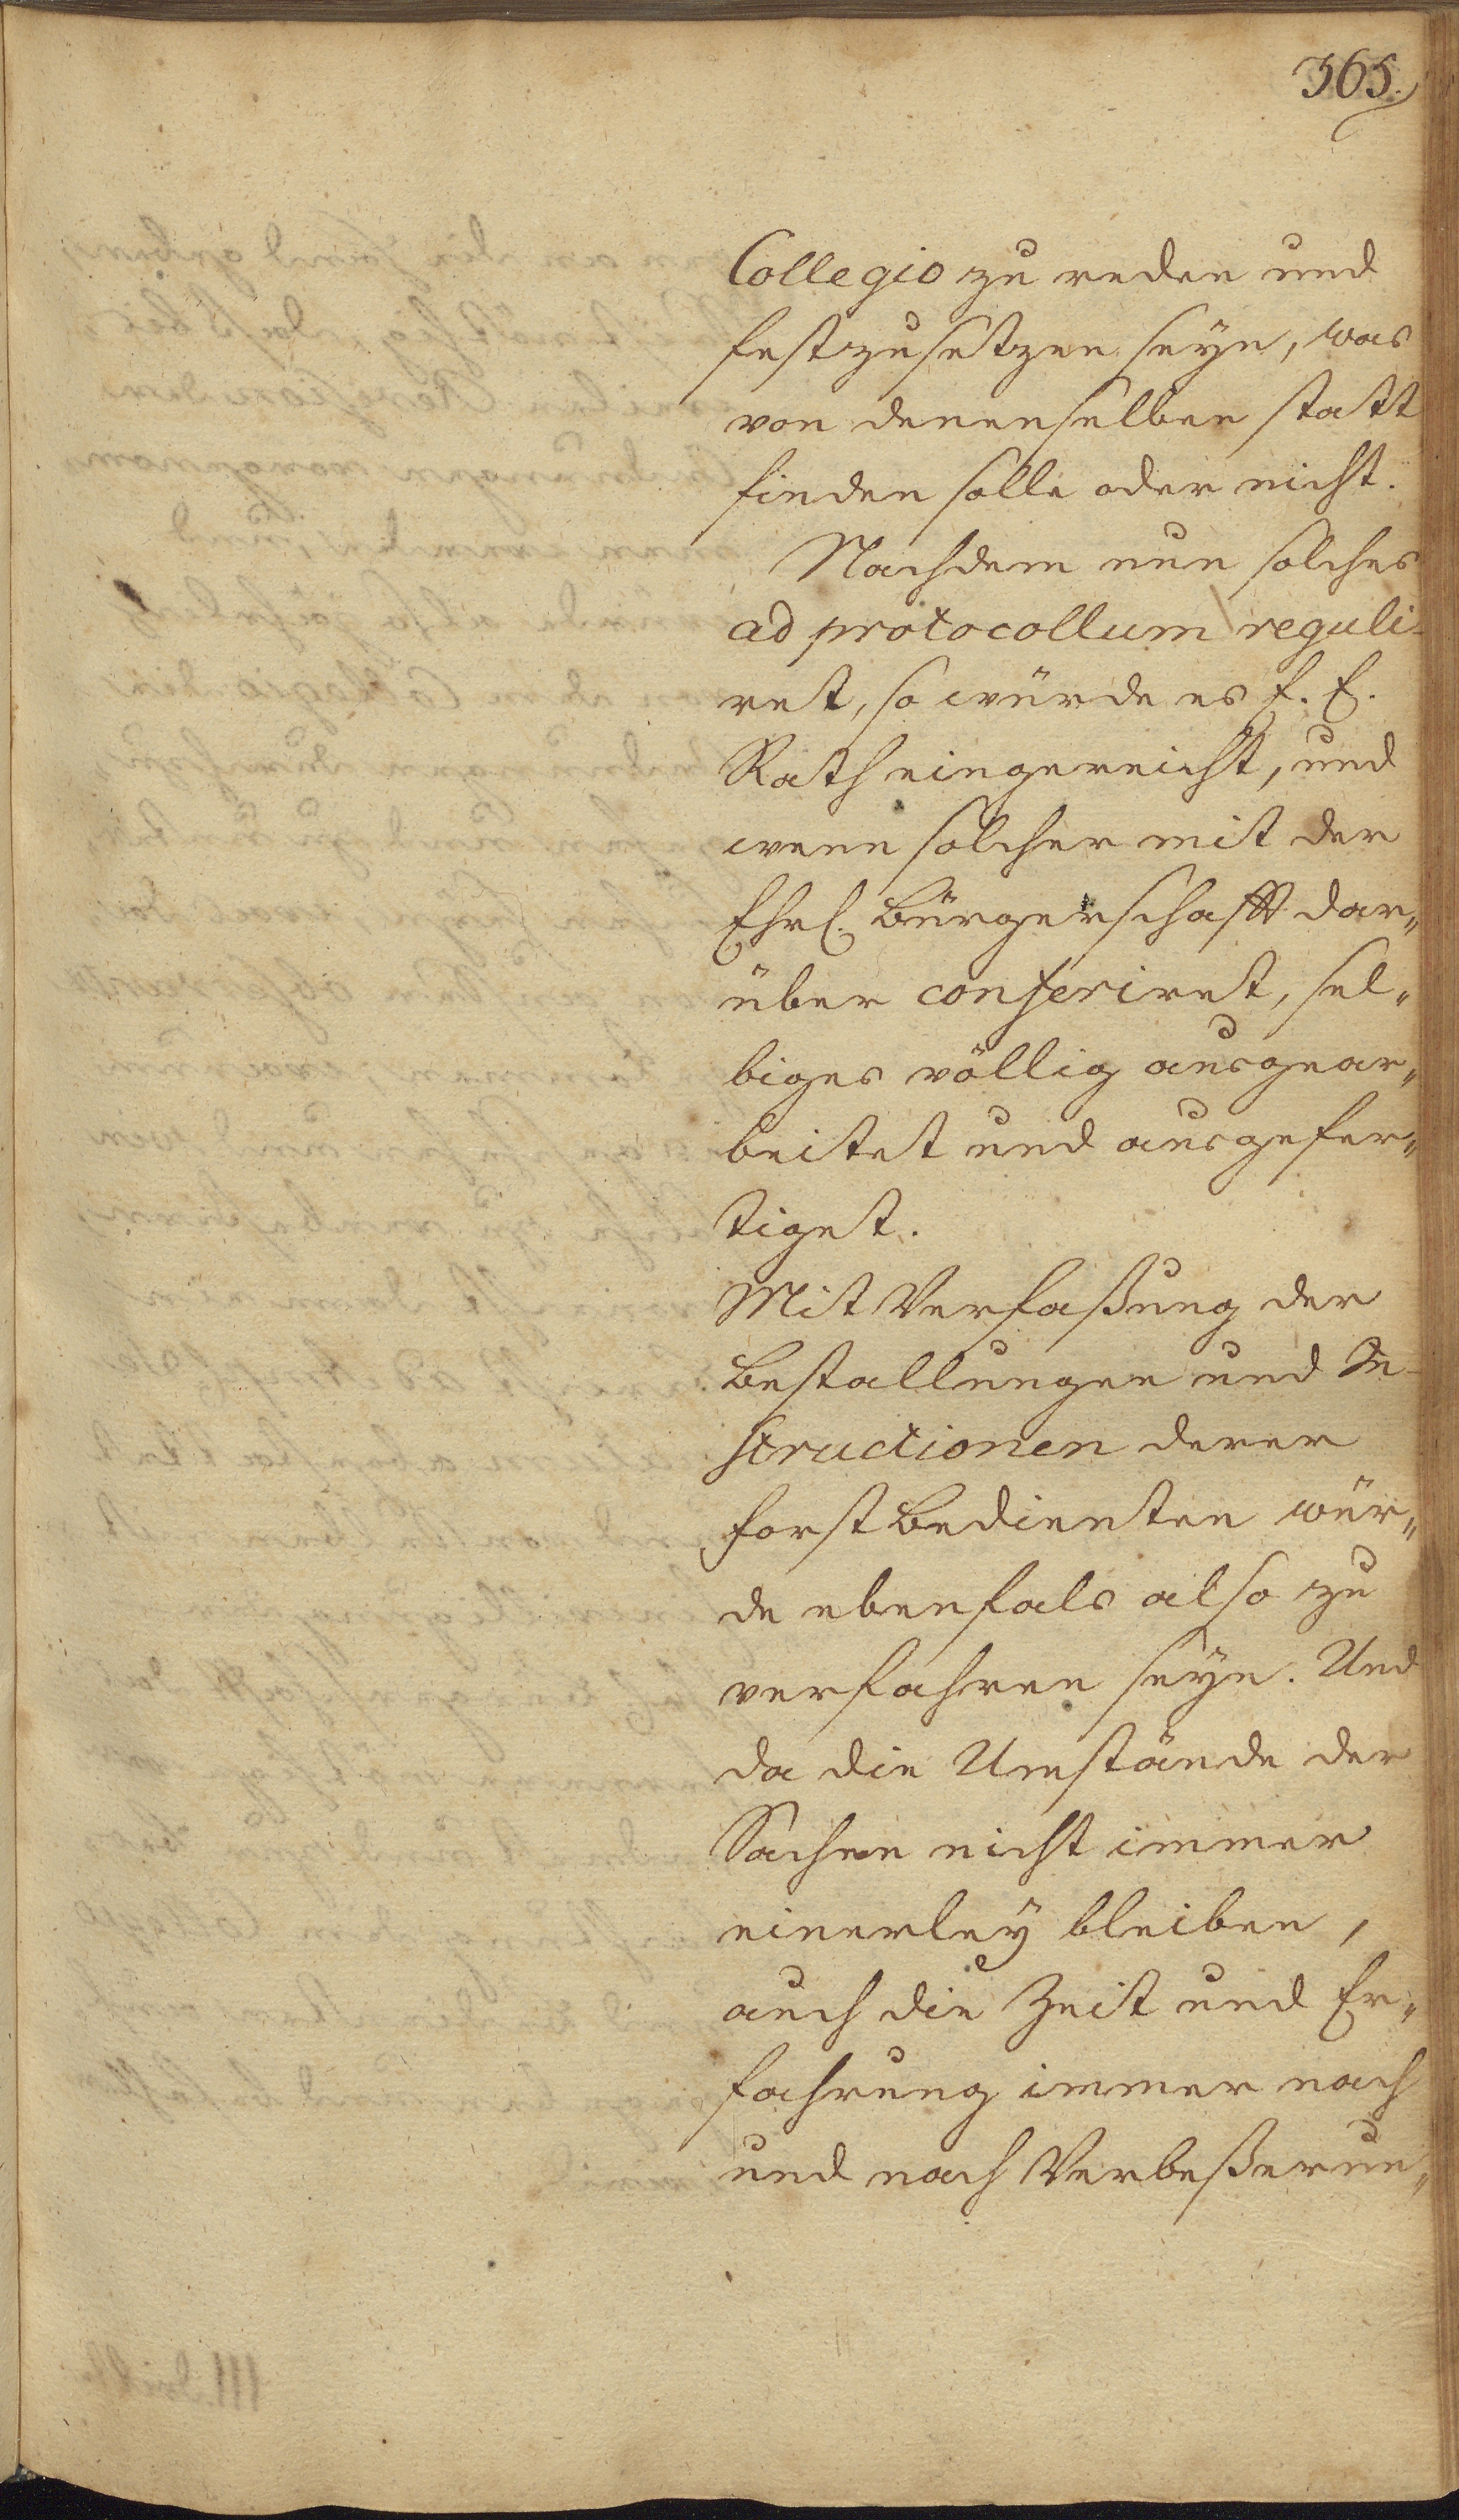 365.
Collegio zu reden und
festzusetzen seyn, was
von denenselben statt
finden solle oder nicht.
Nachdem nun solches
ad protocollum reguli-
ret, so würde es E. E.
Rath eingereicht, und
wenn solcher mit der
Ehrl. Bürgerschafft dar„
über conferiret, sel„
biges völlig ausgear„
beitet und ausgefer„
tiget.
Mit Verfaßung der
Bestallungen und In-
structionen derer
Forst Bedienten wür„
de ebenfals also zu
verfahren seyn. Und
da die Umstände der
Sachen nicht immer
einerley bleiben,
auch die Zeit und Er„
fahrung immer nach
und nach Verbeßerun„